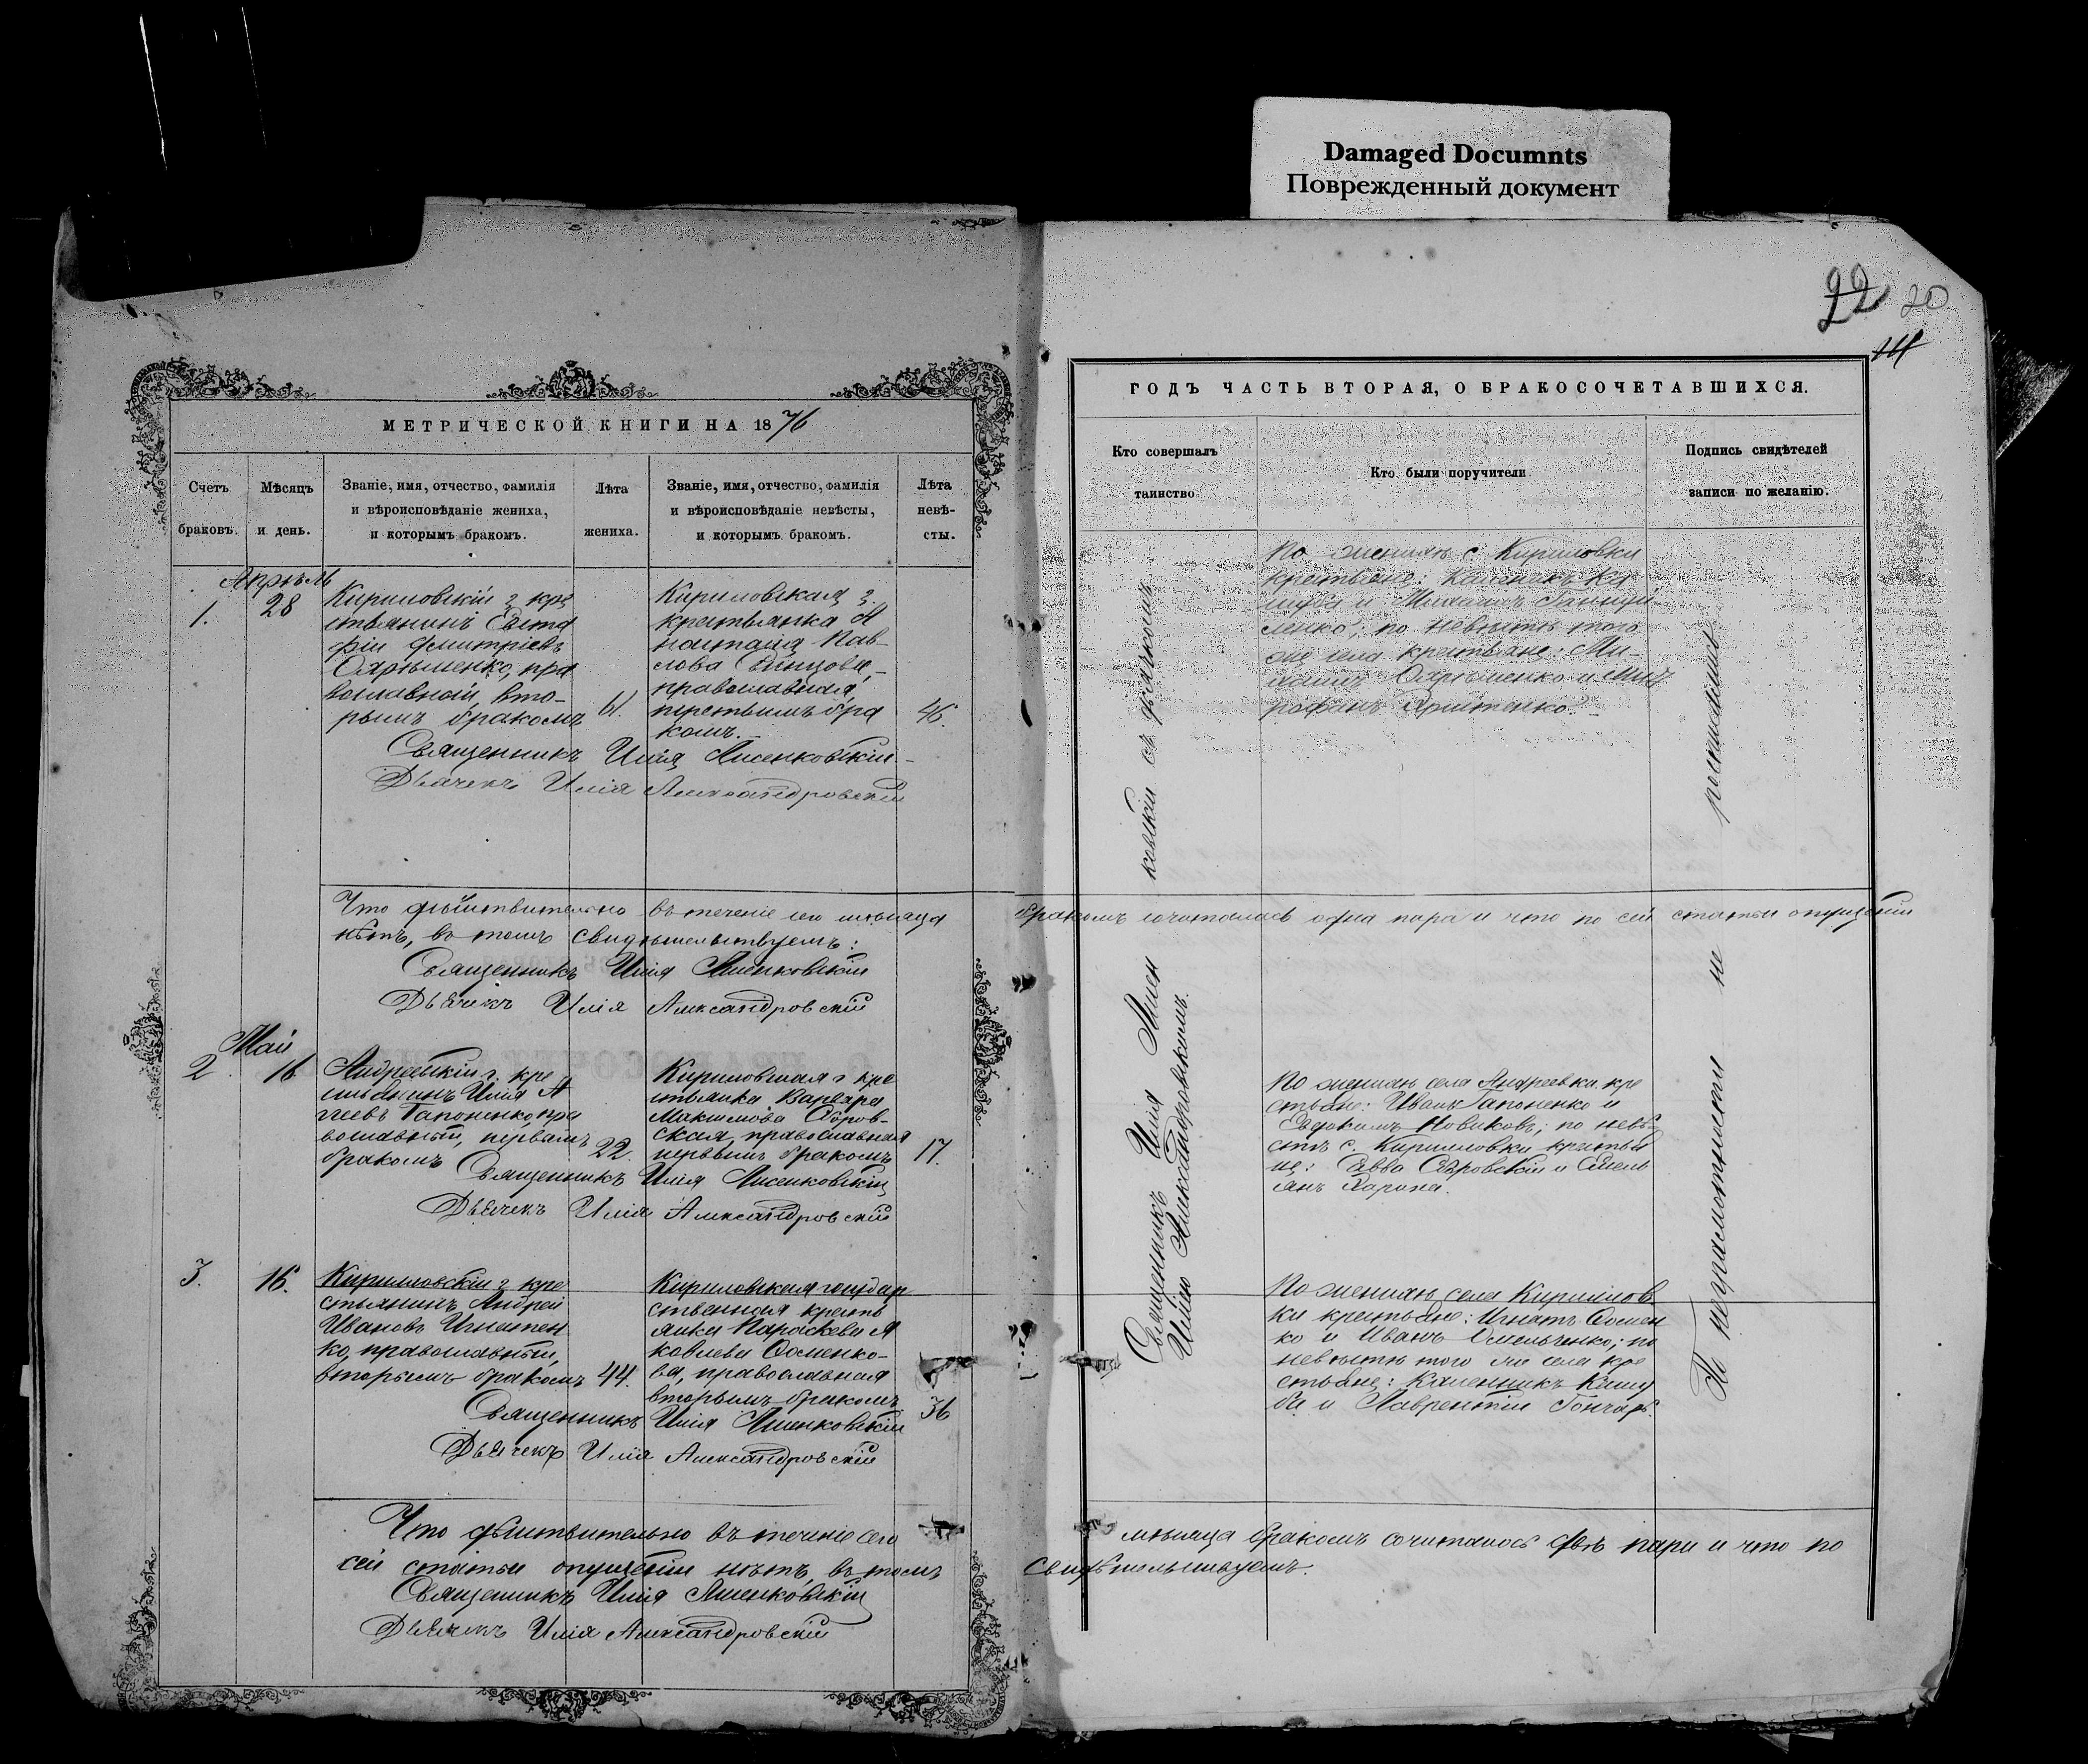 Damaged Documnts
Поврежденный документ
22 20
МЕТРИЧЕСКОЙ КНИГИ НА 1876
Счетъ браковъ.
Мѣсяцъ и день.
Званіе, имя, отчество, фамилія
и вѣроисповѣданіе жениха,
и которымъ бракомъ.
Лѣта
жениха.
Званіе, имя, отчество, фамилія
и вѣроисповѣданіе невѣсты,
и которымъ бракомъ.
Лѣта
невѣ-
сты.
Апрѣль
1.
28
Кириловскій г. кре
стьянинъ Евста
фій Дмитріевъ
православный, вто-
рымъ бракомъ
61.
Кириловская г.
крестьянка А
настасія Пав-
лова
православная,
третьимъ бра
комъ.
46.
Священникъ Илія Лисенковскій
Дьячекъ Илія Александровскій
Что дѣйствительно въ теченіе сего мѣсяца
нѣтъ, въ томъ свидѣтельствуемъ:
Священникъ Илія Лисенковскій
Дьячекъ Илія Александровскій
Май
2
16
Андреевскій г. кре
стьянинъ Илія А
Гапоненко, пра
вославный, первымъ
бракомъ
22.
Кириловская г. кре
стьянка Варвара
Максимова
православная
первымъ бракомъ
17.
Священникъ Илія Лисенковскій
Дьячекъ Илія Александровскій
3.
16.
Кириловскій г. кре
стьянинъ Андрей
Ивановъ Игнатен
ко, православный,
вторымъ бракомъ
44.
Кириловская государ
ственная кресть
янка Параскева Я
ковлева Фоменко-
ва, православная
вторымъ бракомъ
36
Священникъ Илія Лисенковскій
Дьячекъ Илія Александровскій
Что дѣйствительно въ теченіе сего
сей статьи опущеній нѣтъ, въ томъ
Священникъ Илія Лисенковскій
Дьячекъ Илія Александровскій
ГОДЪ ЧАСТЬ ВТОРАЯ, О БРАКОСОЧЕТАВШИХСЯ.
Кто совершалъ
таинство
Кто были поручители
Подпись свидѣтелей
записи по желанію.
Священникъ Илія Лисен ковскій съ дьячкомъ
Иліею Александровскимъ.
По женихѣ с. Кириловки
крестьяне: Каленикъ Ка
и Михаилъ
ленко; по невѣстѣ того
же села крестьяне: Ми-
и Мит
рофанъ
бракомъ сочиталась одна пара и что по сей статьи опущеній
По женихѣ села Андреевки кре
стьяне: Иванъ Гапоненко и
Евдокимъ Новиковъ; по невѣ-
стѣ с. Кирилловки крестья
не: Савва и Емель
янъ
По женихѣ села Кириллов
ки крестьяне: Игнатъ Фомен
ко и Иванъ Омельченко; по
невѣстѣ того же села кре
стьяне: Каленникъ
и Лаврентій Гончаръ.
По неграмотности не росписались
мѣсяца бракомъ сочиталось двѣ пары и что по
свидѣтельствуемъ.